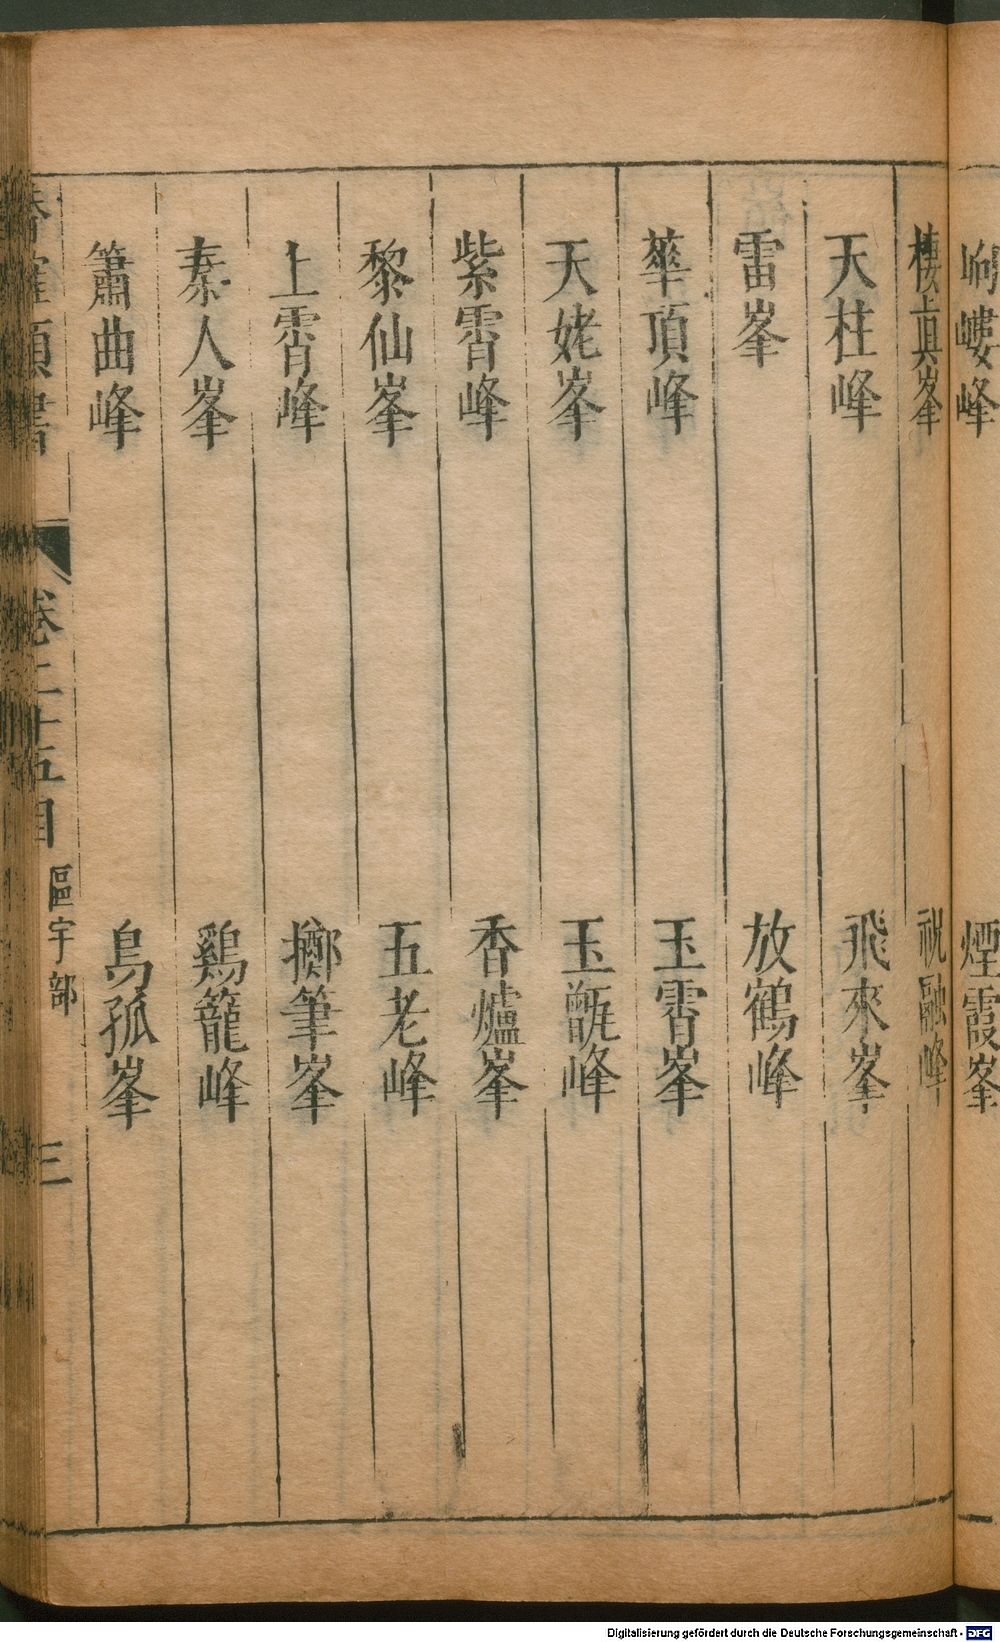 岣嶁峰　煙霞峯
棲真峯　祝融峰
天柱峰　飛來峯
雷峯　放鶴峰
華頂峰　玉霄峯
天姥峯　玉甑峰
紫霄峰　香爐峯
黎仙峯　五老峰
上霄峰　擲筆峯
秦人峯　鷄籠峰
簫曲峰　烏孤峯
卷二十五目　區宇部　三
Digitalisierung gefördert durch die Deutsche Forschungsgemeinschaft - DFG